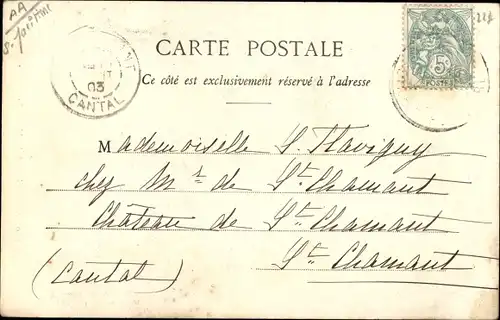 AA
CARTE POSTALE
Ce côté est exclusivement réservé à l'adresse
03
CANTAL
5c
POSTES
Mademoiselle S. Flavigny
chez Mr de St Chamant
Château de St Chamant
St Chamant
(Cantal)